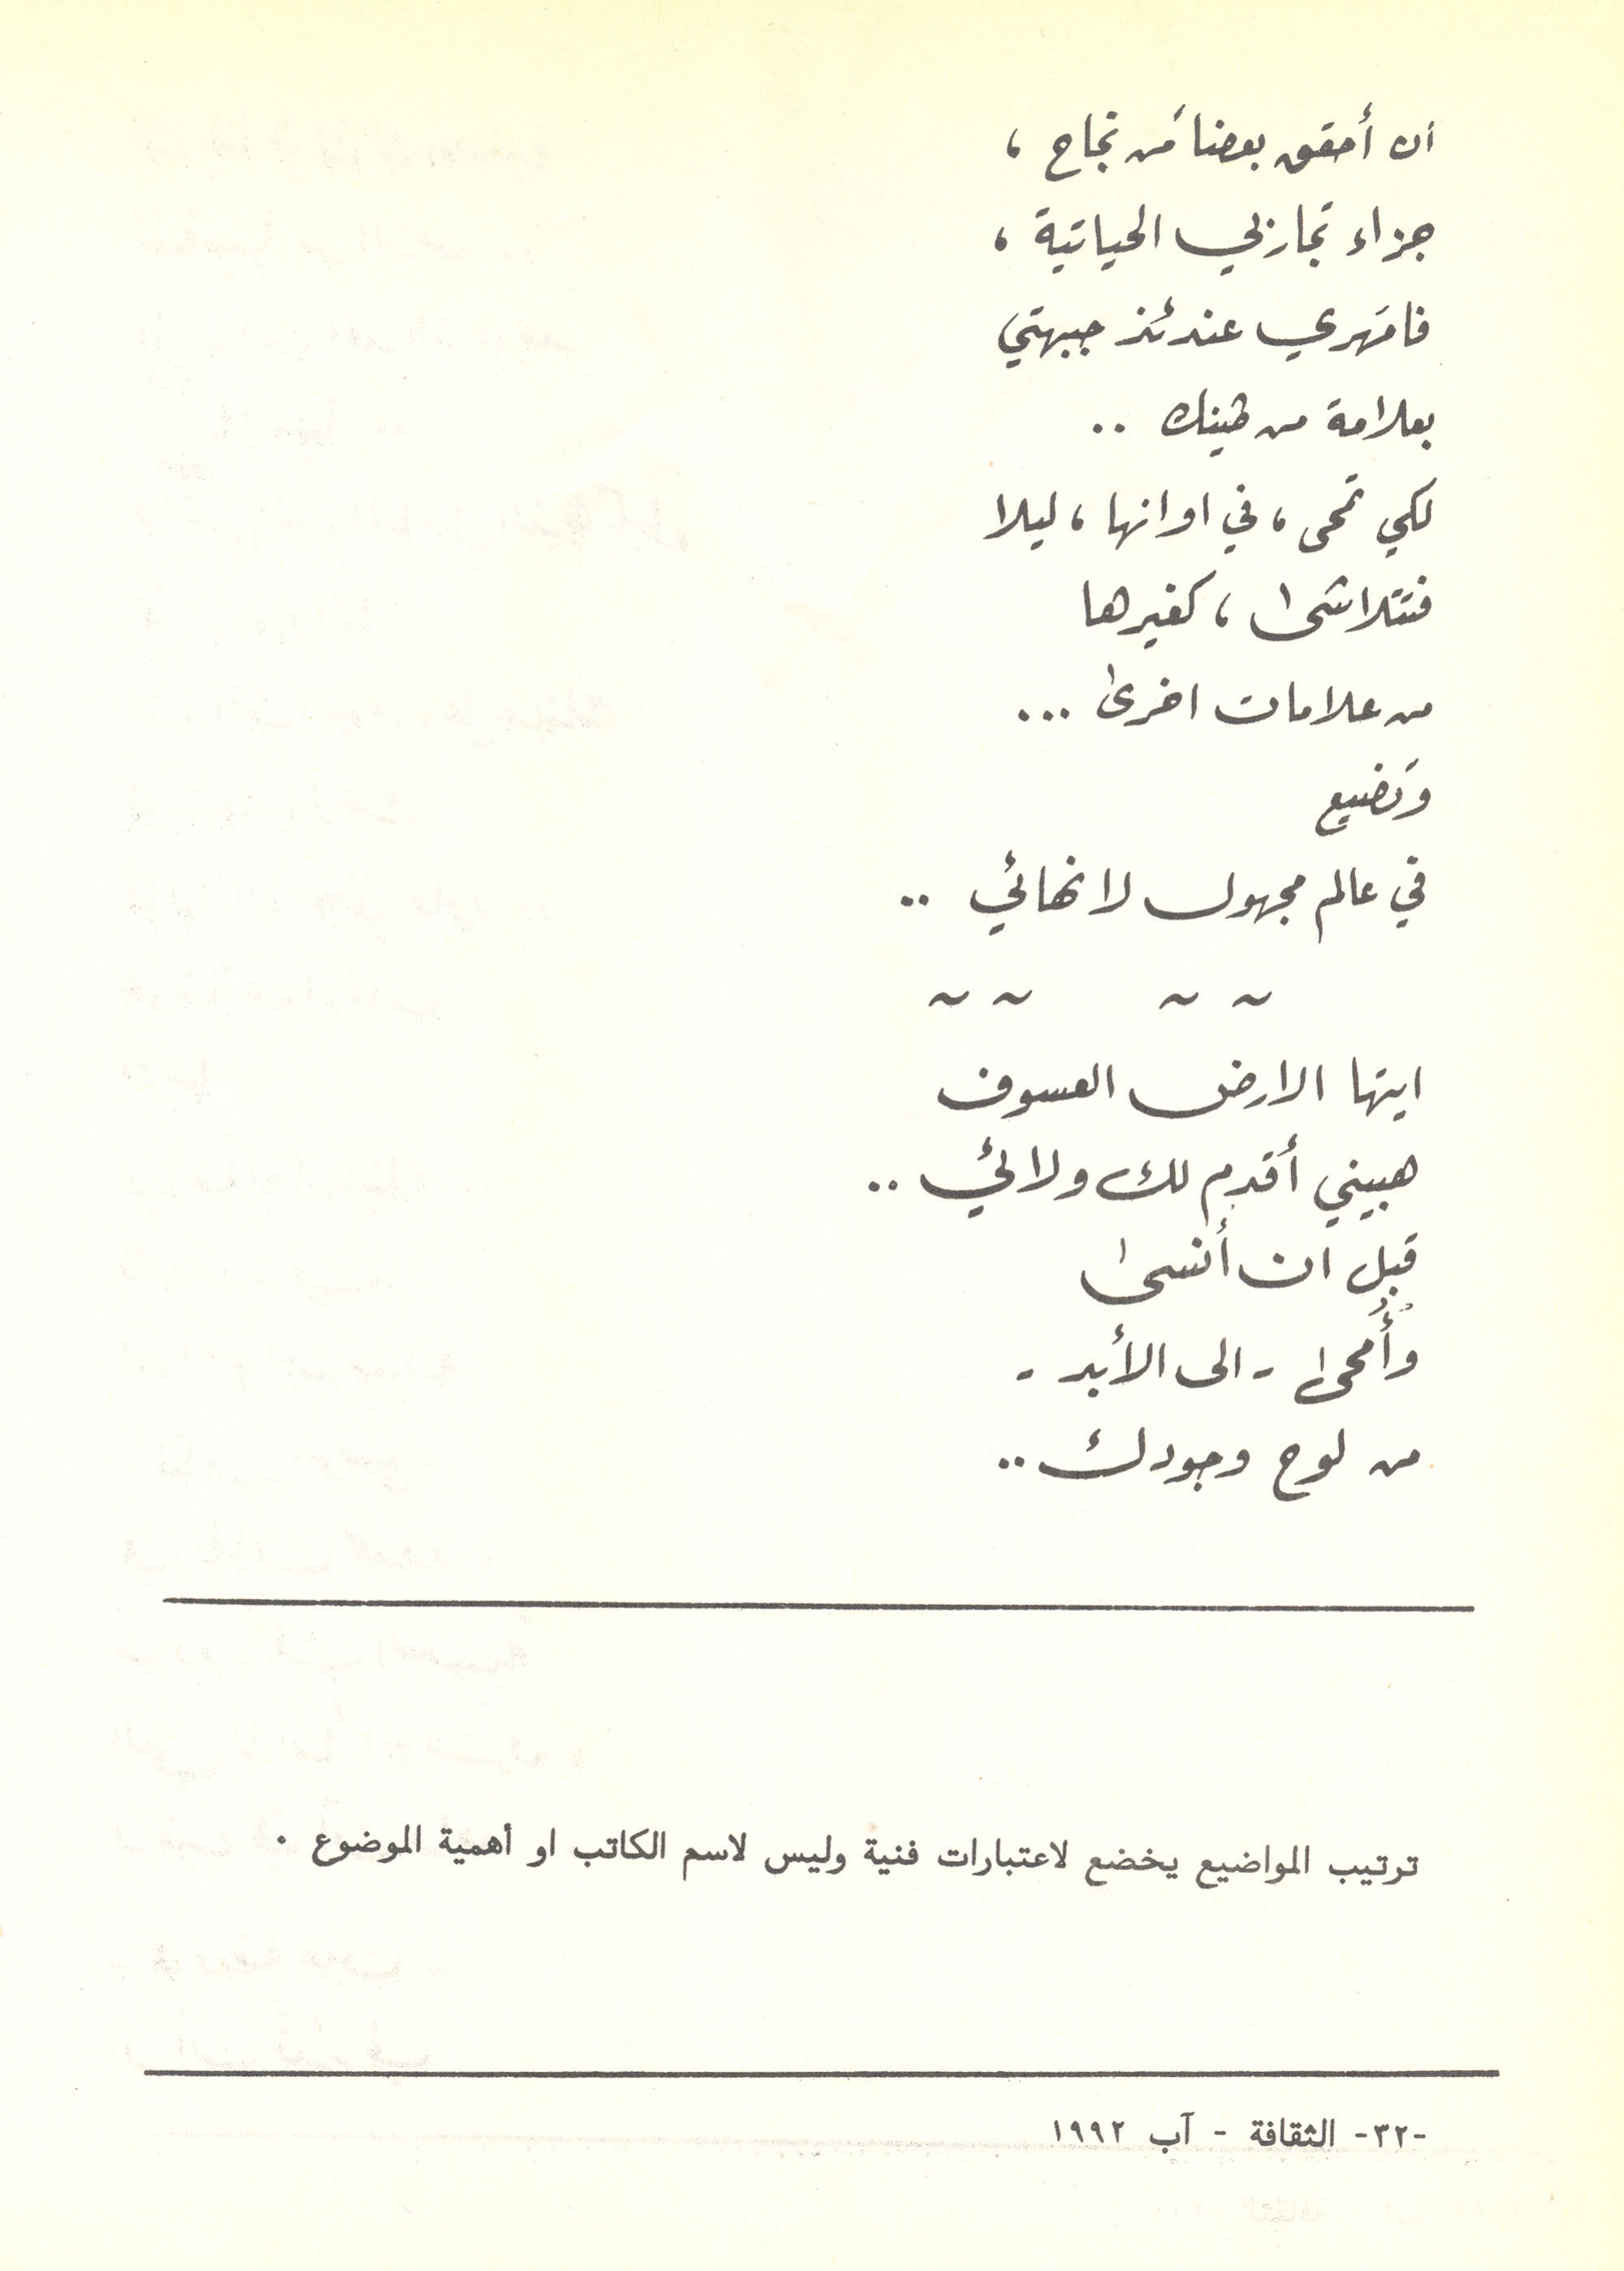 أن أحقق بعضاً من نجاح ،
جزاء تجاربي الحياتية ،
فامهري عندئذ جبهتي
بعلامة من طينك ..
لكي تمحى ، في اوانها ، ليلا
فتتلاشى ، كغيرها
من علامات اخرى ...
وَتضيع
في عالم مجهول لا نهائي ..
~ ~ ~ ~
ايتها الارض العسوف
هبيني أقدم لك ولائي ..
قبل ان أُنسى
وأُمحى - الى الأبد -
من لوح وجودك ..
ترتيب المواضيع يخضع لاعتبارات فنية وليس لاسم الكاتب او أهمية الموضوع .
-٣٢- الثقافة - آب ١٩٩٢